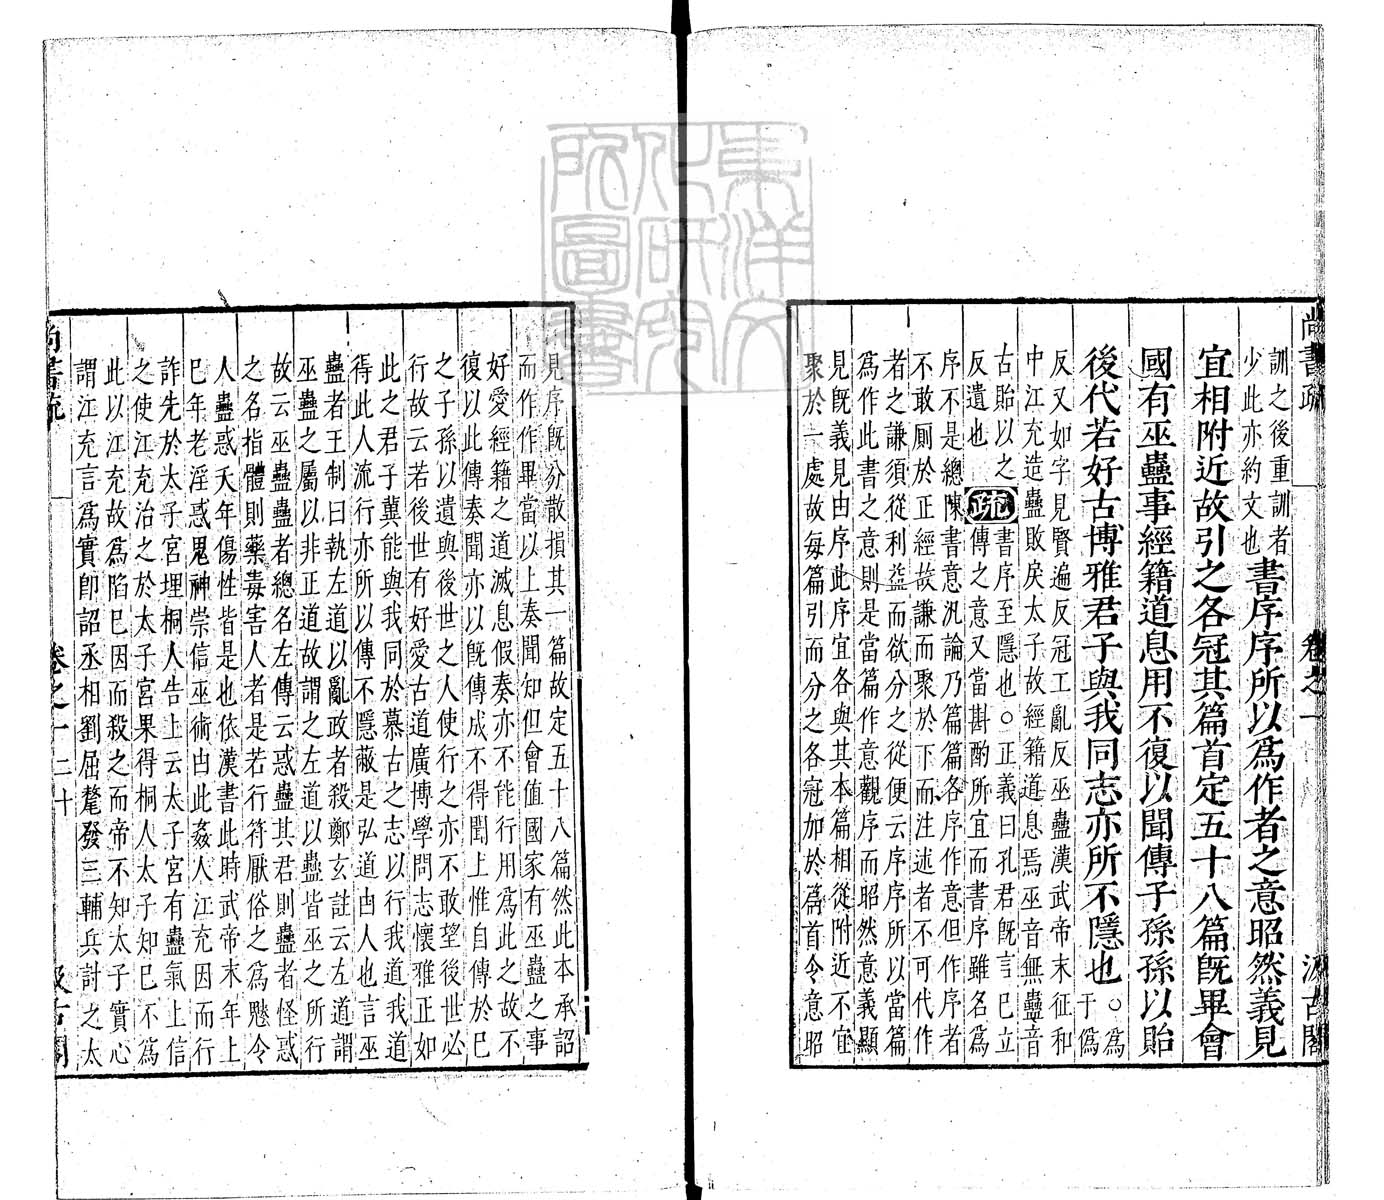 尚書疏 卷之一 汲古閣
訓之後重訓者
少此亦約文也
書序序所以爲作者之意昭然義見
宜相附近故引之各冠其篇首定五十八篇旣畢會
國有巫蠱事經籍道息用不復以聞傳子孫孫以貽
後代若好古博雅君子與我同志亦所不隱也
○爲于僞
反又如字見賢遍反冠工亂反巫蠱漢武帝末征和
中江充造蠱敗戾太子故經籍道息焉巫音無蠱音
古貽以之
反遺也
疏
書序至隱也○正義曰孔君旣言已立
傳之意又當斟酌所宜而書序雖名爲
序不是總陳書意汎論乃篇篇各序作意但作序者
不敢厠於正經故謙而聚於下而注述者不可代作
者之謙須從利益而欲分之從便云序序所以當篇
爲作此書之意則是當篇作意觀序而昭然意義顯
見旣義見由序此序宜各與其本篇相從附近不宜
聚於一處故每篇引而分之各冠加於篇首令意昭
見序旣分散損其一篇故定五十八篇然此本承詔
而作作畢當以上奏聞知但會值國家有巫蠱之事
好愛經籍之道滅息假奏亦不能行用爲此之故不
復以此傳奏聞亦以旣傳成不得聞上惟自傳於已
之子孫以遺與後世之人使行之亦不敢望後世必
行故云若後世有好愛古道廣博學問志懷雅正如
此之君子冀能與我同於慕古之志以行我道我道
得此人流行亦所以傳不隱蔽是弘道由人也言巫
蠱者王制曰執左道以亂政者殺鄭玄註云左道謂
巫蠱之屬以非正道故謂之左道以蠱皆巫之所行
故云巫蠱蠱者總名左傳云惑蠱其君則蠱者怪惑
之名指體則藥毒害人者是若行符厭俗之爲魘令
人蠱惑夭年傷性皆是也依漢書此時武帝末年上
已年老淫惑鬼神崇信巫術由此姦人江充因而行
詐先於太子宮埋桐人告上云太子宮有蠱氣上信
之使江充治之於太子宮果得桐人太子知已不爲
此以江充故爲陷已因而殺之而帝不知太子實心
謂江充言爲實卽詔丞相劉屈氂發三輔兵討之太
尚書疏 卷之一 二十 汲古閣
東洋文化研究所圖書